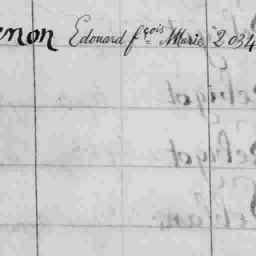 enon Edouard fçois Marie 2034